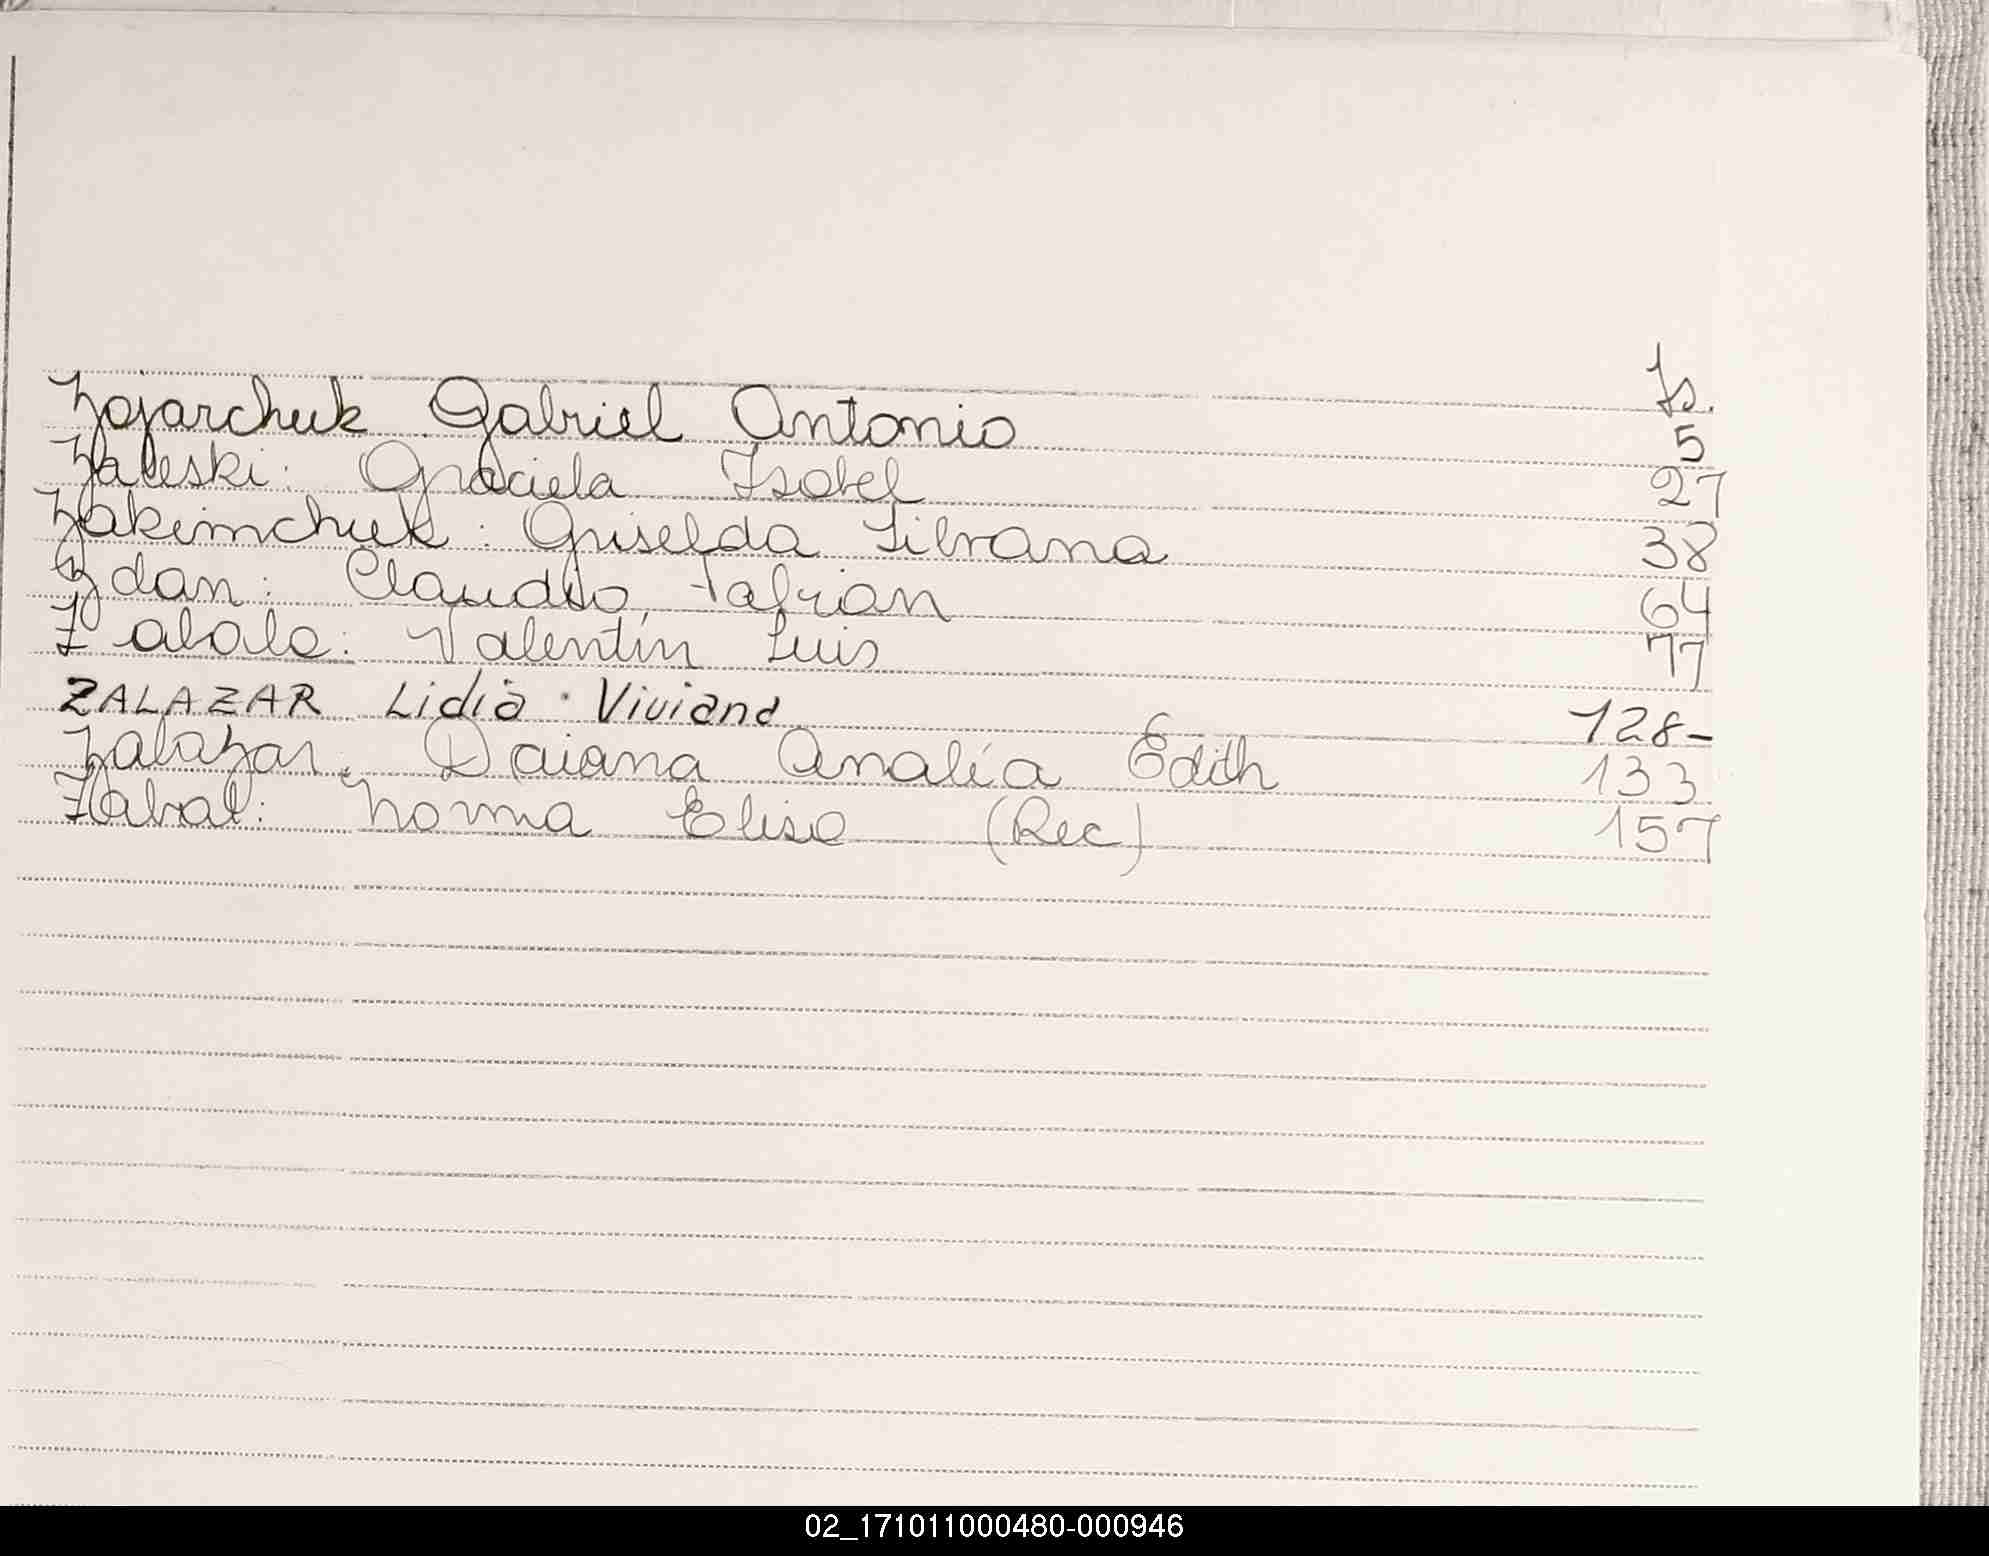 fs.
Zajarchuk Gabriel Antonio 5
Zaleski: Graciela Isabel 27
Zakimchuk: Griselda Silvana 38
Zdan: Claudio Fabián 64
Zabala: Valentín Luis 77
ZALAZAR Lidia Viviana 128-
Zalazar: Daiana Analía Edith 133
Zabal: Norma Elisa (Rec) 157
02_171011000480-000946